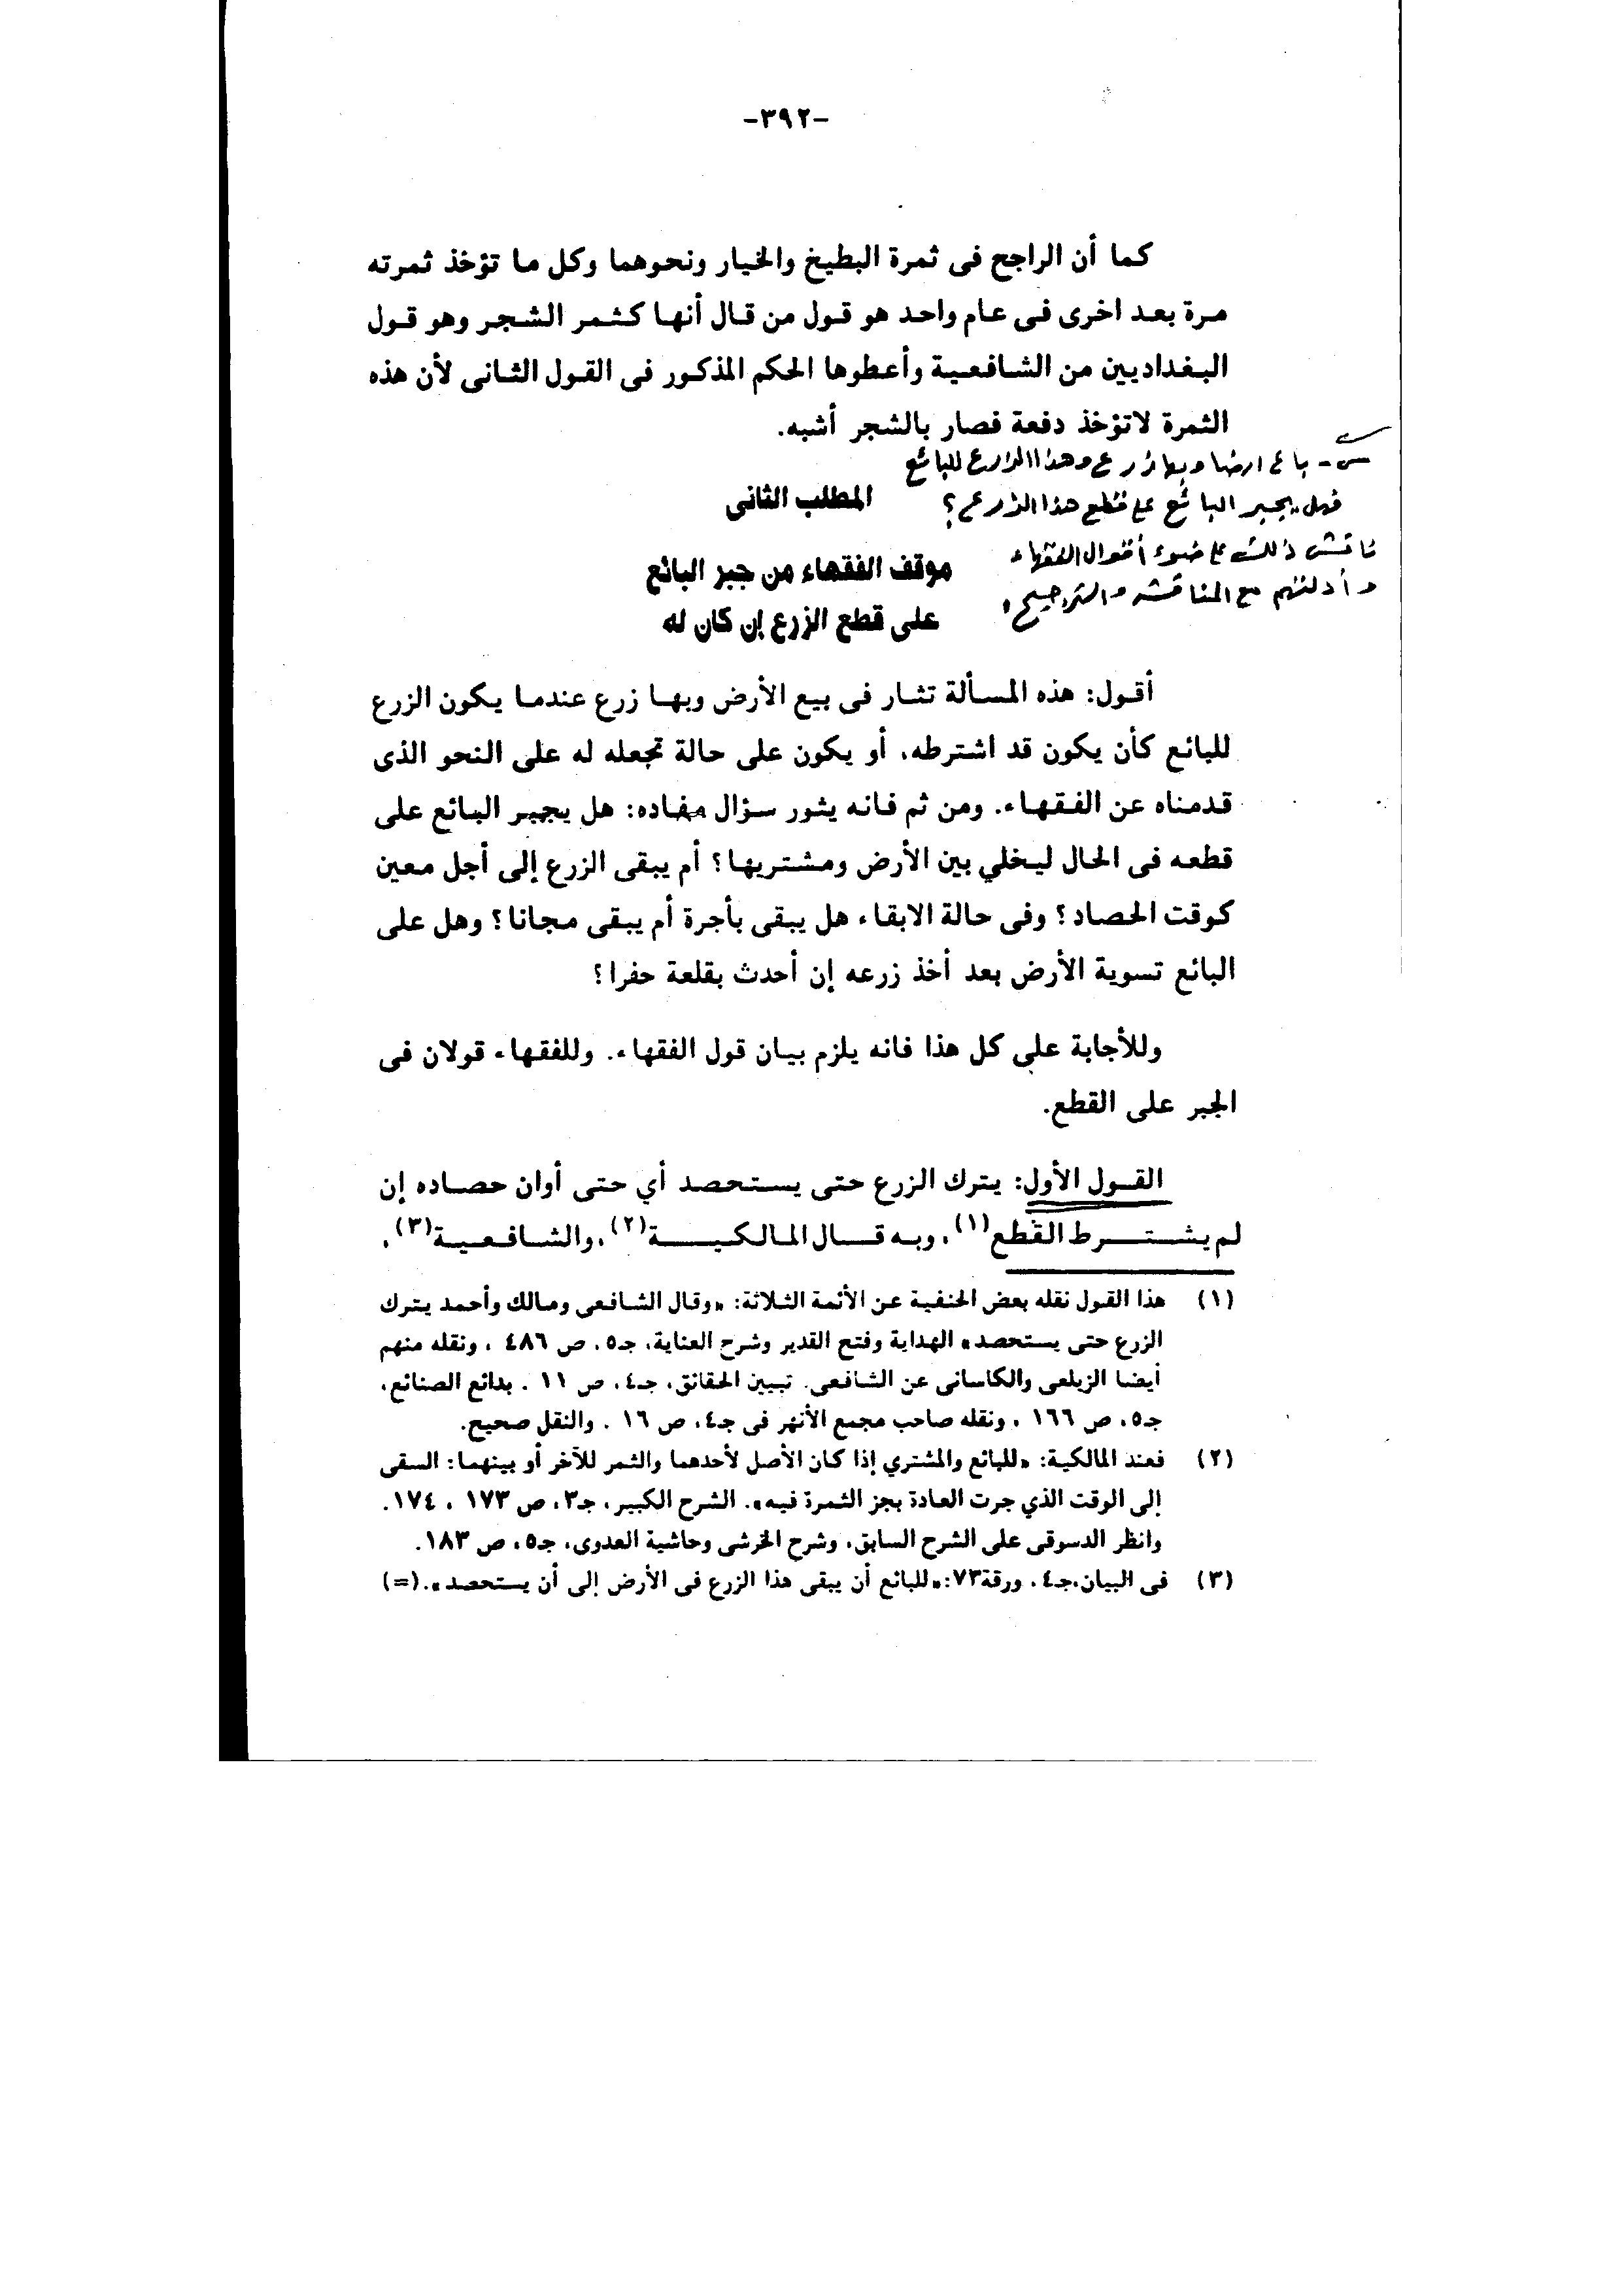 -٣٩٢-
كما أن الراجح فى ثمرة البطيخ والخيار ونحوهما وكل ما تؤخذ ثمرته
مرة بعد اخرى فى عام واحد هو قول من قال أنها كثمر الشجر وهو قول
البغداديين من الشافعية وأعطوها الحكم المذكور فى القول الثانى لأن هذه
الثمرة لاتؤخذ دفعة فصار بالشجر أشبه.
س - باع ارضا وبها زرع وهذا الزرع للبائع
فهل يجبر البائع على قطع هذا الزرع؟
ناقش ذلك على ضوء أقوال الفقهاء
وأدلتهم مع المناقشه والترجيح
المطلب الثانى
موقف الفقهاء من جبر البائع
على قطع الزرع إن كان له
أقول: هذه المسألة تثار فى بيع الأرض وبها زرع عندما يكون الزرع
للبائع كأن يكون قد اشترطه، أو يكون على حالة تجعله له على النحو الذى
قدمناه عن الفقهاء. ومن ثم فانه يثور سؤال مفاده: هل يجبر البائع على
قطعه فى الحال ليخلي بين الأرض ومشتريها؟ أم يبقى الزرع إلى أجل معين
كوقت الحصاد؟ وفى حالة الابقاء هل يبقى بأجرة أم يبقى مجانا؟ وهل على
البائع تسوية الأرض بعد أخذ زرعه إن أحدث بقلعة حفرا؟
وللأجابة على كل هذا فانه يلزم بيان قول الفقهاء. وللفقهاء قولان فى
الجبر على القطع.
القول الأول: يترك الزرع حتى يستحصد أي حتى أوان حصاده إن
لم يشترط القطع(١)، وبه قال المالكية(٢)، والشافعية(٣)،
(١) هذا القول نقله بعض الحنفية عن الأئمة الثلاثة: «وقال الشافعى ومالك وأحمد يترك
الزرع حتى يستحصد» الهداية وفتح القدير وشرح العناية، جـ٥، ص ٤٨٦ ، ونقله منهم
أيضا الزيلعى والكاسانى عن الشافعى. تبيين الحقائق، جـ٤، ص ١١ . بدائع الصنائع،
جـ٥، ص ١٦٦ ، ونقله صاحب مجمع الأنهر فى جـ٤، ص ١٦ . والنقل صحيح.
(٢) فعند المالكية: «للبائع والمشتري إذا كان الأصل لأحدهما والثمر للآخر أو بينهما: السقى
إلى الوقت الذي جرت العادة بجز الثمرة فيه». الشرح الكبير، جـ٣، ص ١٧٣ ، ١٧٤.
وانظر الدسوقى على الشرح السابق، وشرح الخرشى وحاشية العدوى، جـ٥، ص ١٨٣.
(٣) فى البيان،جـ٤، ورقة٧٣:«للبائع أن يبقى هذا الزرع فى الأرض إلى أن يستحصد».(=)